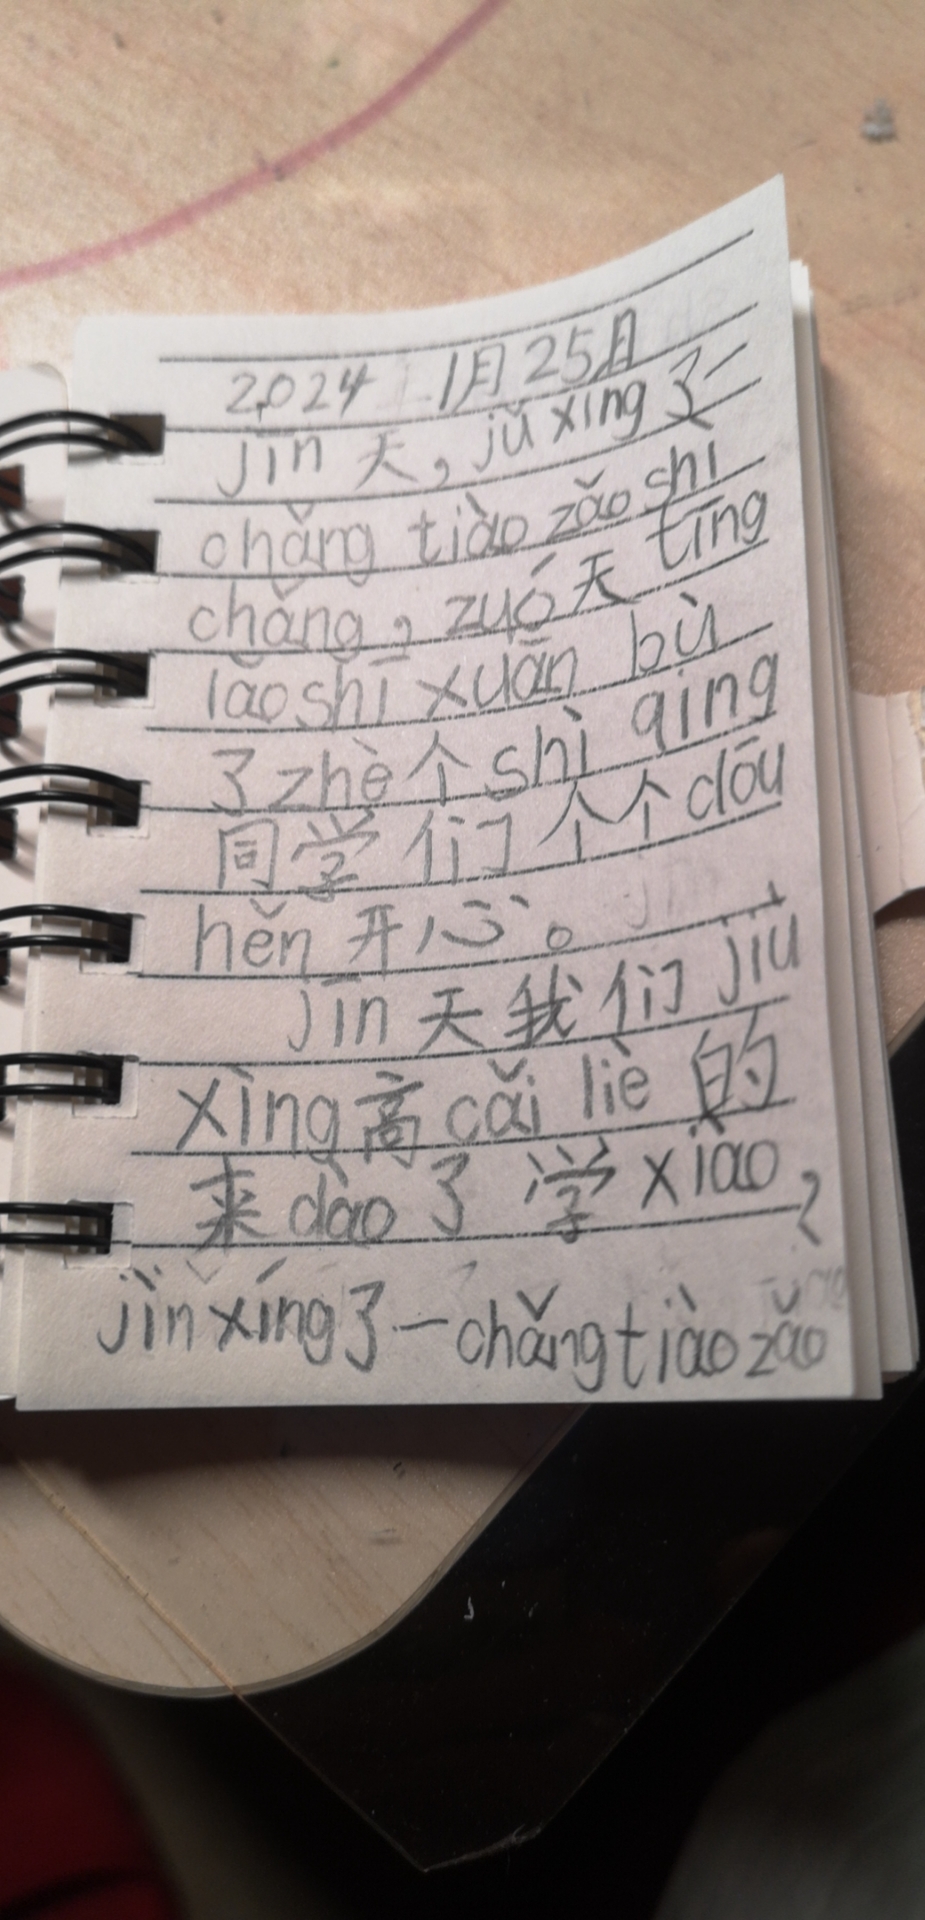 2024 1月25日
jīn 天，jǔ xing 了一
chǎng tiào zǎo shì
chǎng，zuó 天 tīng
lǎo shī xuān bù
了 zhè 个 shì qing
同学们个个 dōu
hěn 开心。
jīn 天我们 jiù
xìng 高 cǎi liè 的
来 dào 了学 xiào，
jìn xíng 了一 chǎng tiào zǎo